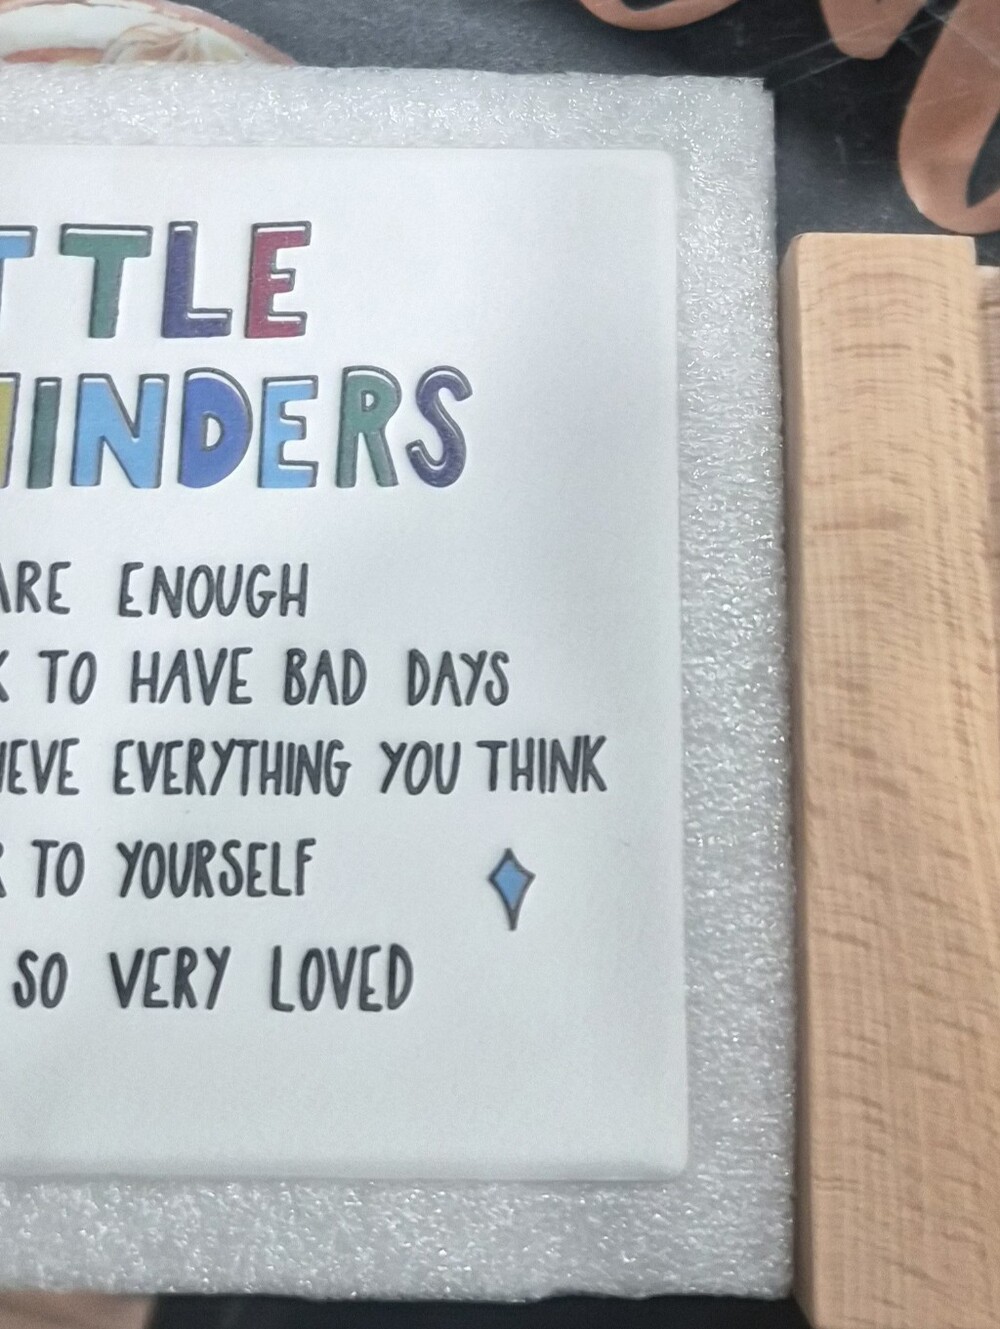 TTLE
INDERS
ARE ENOUGH
K TO HAVE BAD DAYS
IEVE EVERYTHING YOU THINK
R TO YOURSELF
SO VERY LOVED